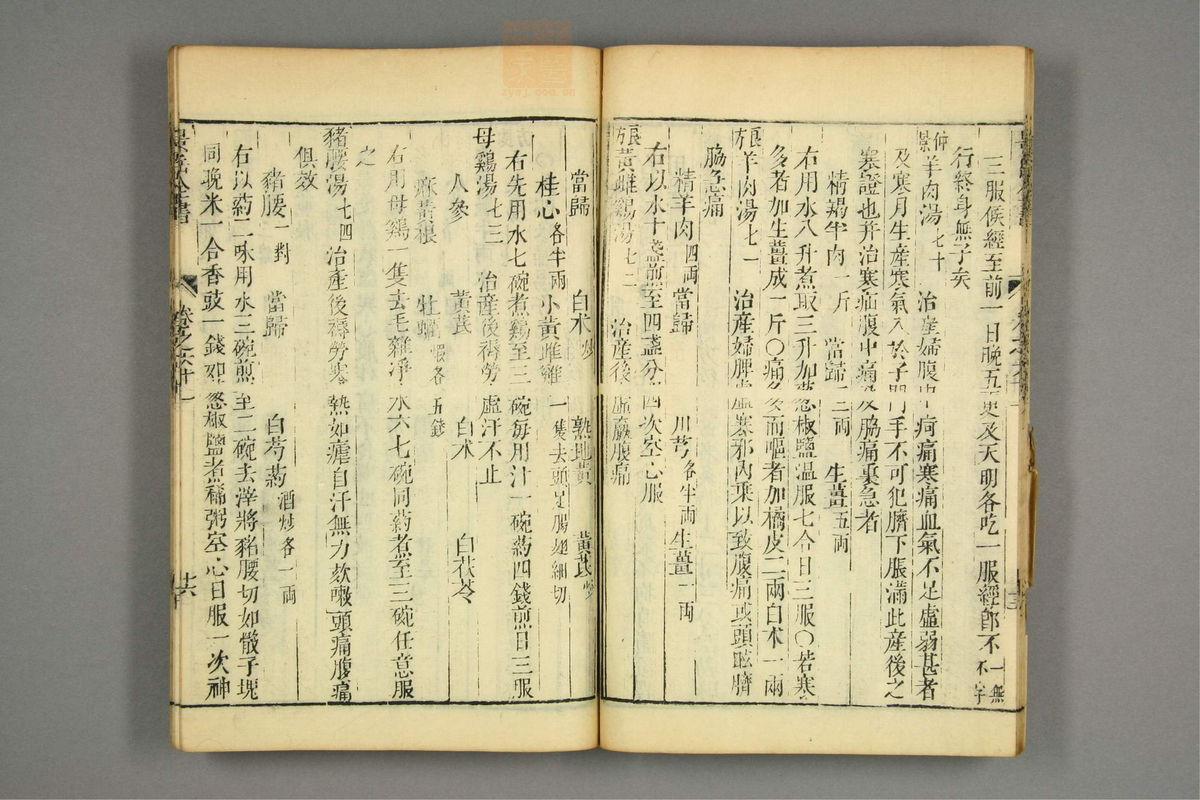 三服候經至前一日晚五更及天明各吃一服經卽不一無不字
行終身無子矣
仲景羊肉湯七十 治産婦腹中㽲痛寒痛血氣不足虛弱甚者
及寒月生産寒氣入於子門手不可犯臍下脹滿此産後之
寒證也并治寒疝腹中痛及脇痛裏急者
精羯羊肉一斤 當歸三兩 生薑五兩
右用水八升煮取三升加葱椒鹽溫服七合日三服〇若寒
多者加生薑成一斤〇痛多而嘔者加橘皮二兩白朮一兩
良方羊肉湯七一 治産婦脾虛寒邪內乘以致腹痛或頭眩臍
脇急痛
精羊肉四兩當歸 川芎各半兩生薑一兩
右以水十盞煎至四盞分四次空心服
良方黃雌鷄湯七二 治産後虛羸腹痛
當歸 白朮炒 熟地黃 黃芪炒
桂心各半兩小黃雌雞一隻去頭足腸翅細切
右先用水七碗煮鷄至三碗每用汁一碗藥四錢煎日三服
母鷄湯七三 治産後褥勞虛汗不止
人參 黃芪 白朮 白茯苓
麻黃根 牡蠣煆各五錢
右用母鷄一隻去毛雜淨水六七碗同藥煮至三碗任意服
之
豬腰湯七四 治産後褥勞寒熱如瘧自汗無力欬嗽頭痛腹痛
俱效
豬腰一對 當歸 白芍藥酒炒各一兩
右以藥二味用水三碗煎至二碗去滓將豬腰切如骰子塊
同晚米一合香豉一錢 葱椒鹽煮稀粥空心日服一次神
卷之六十一
十六